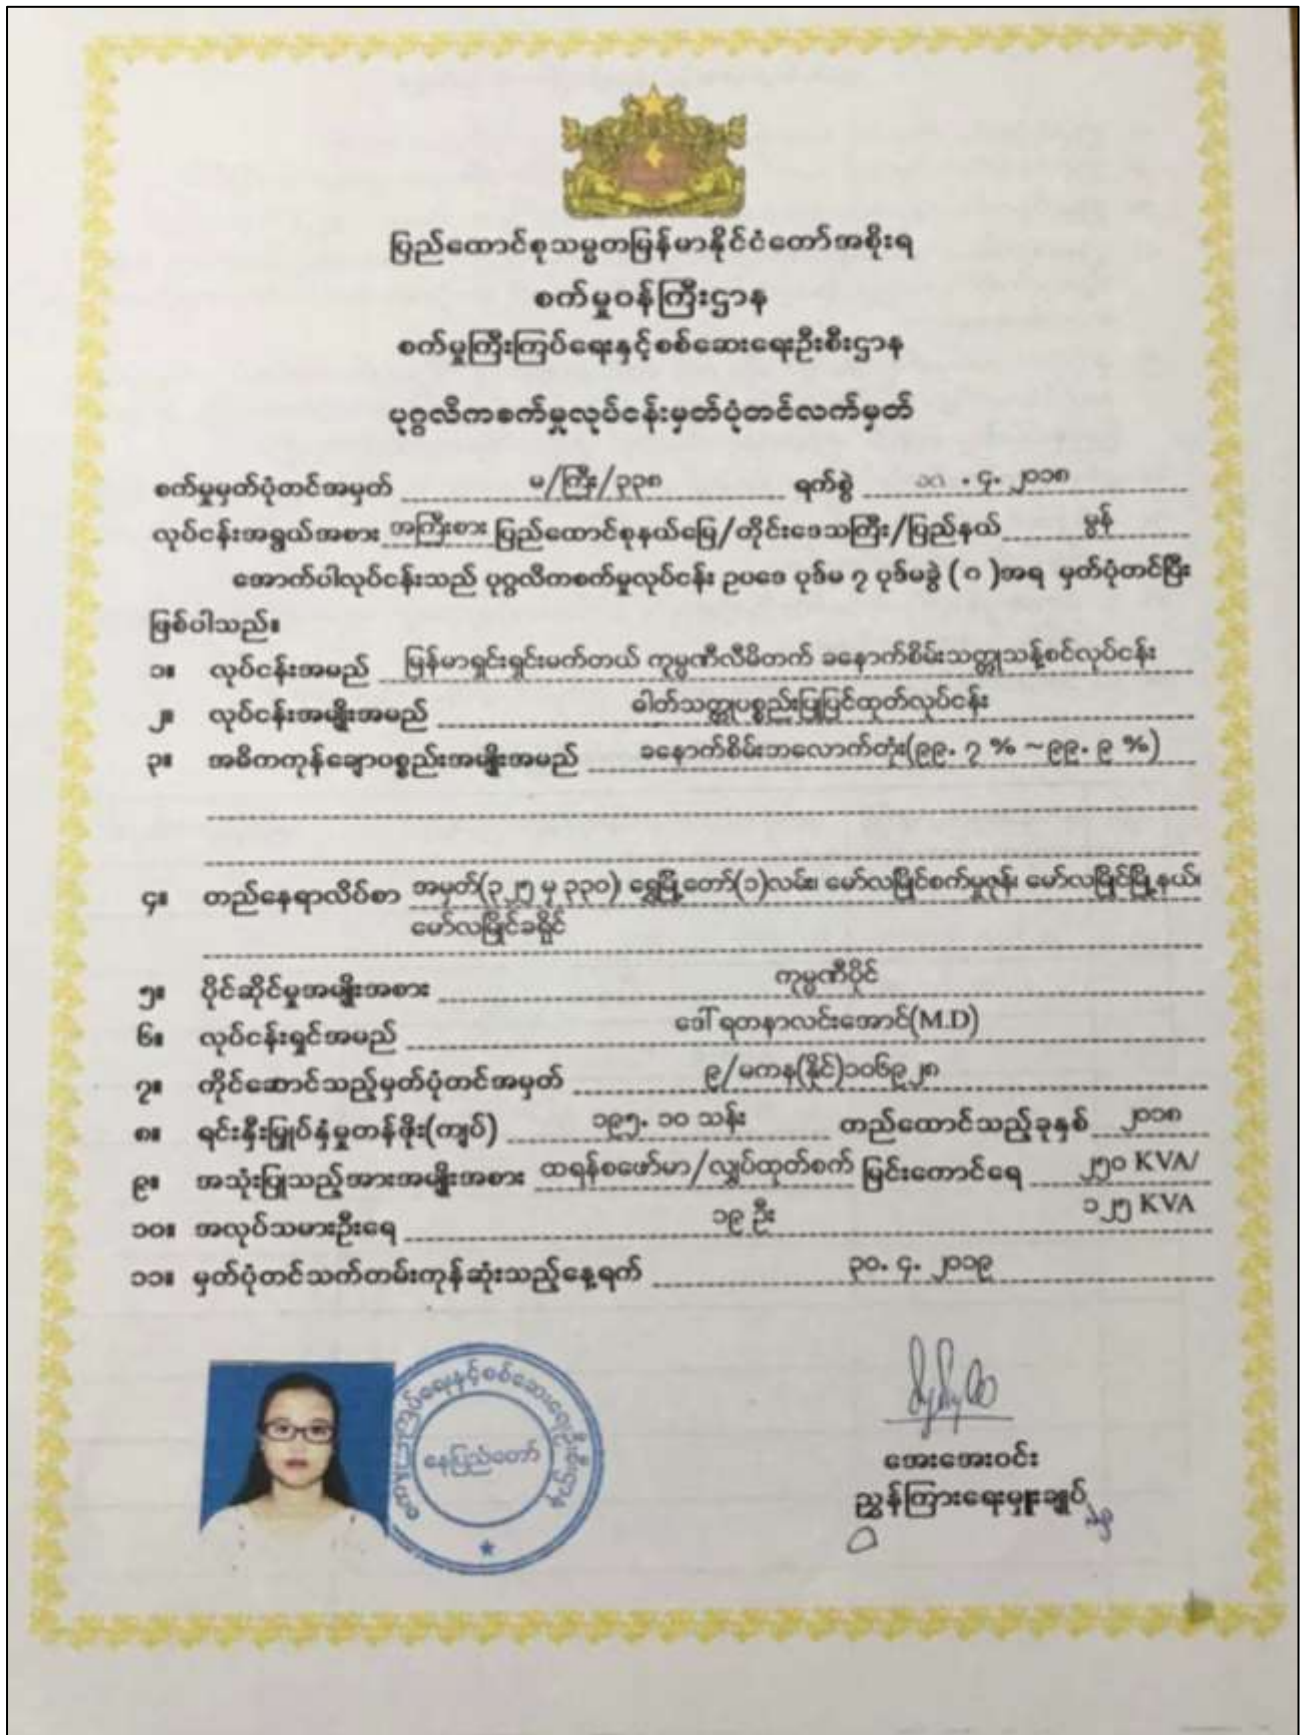 ပြည်ထောင်စုသမ္မတမြန်မာနိုင်ငံတော်အစိုးရ
စက်မှုဝန်ကြီးဌာန
စက်မှုကြီးကြပ်ရေးနှင့်စစ်ဆေးရေးဦးစီးဌာန
ပုဂ္ဂလိကစက်မှုလုပ်ငန်းမှတ်ပုံတင်လက်မှတ်
စက်မှုမှတ်ပုံတင်အမှတ် မ/ကြီး/၃၃၈ ရက်စွဲ . ၄. ၂၀၁၈
လုပ်ငန်းအရွယ်အစား အကြီးစား ပြည်ထောင်စုနယ်မြေ/တိုင်းဒေသကြီး/ပြည်နယ် မွန်
အောက်ပါလုပ်ငန်းသည် ပုဂ္ဂလိကစက်မှုလုပ်ငန်း ဥပဒေ ပုဒ်မ ၇ ပုဒ်မခွဲ ( ဂ )အရ မှတ်ပုံတင်ပြီး
ဖြစ်ပါသည်။
၁။ လုပ်ငန်းအမည် မြန်မာရှင်းရှင်းမက်တယ် ကုမ္ပဏီလီမိတက် ခနောက်စိမ်းသတ္တုသန့်စင်လုပ်ငန်း
၂။ လုပ်ငန်းအမျိုးအမည် ဓါတ်သတ္တုပစ္စည်းပြုပြင်ထုတ်လုပ်ငန်း
၃။ အဓိကကုန်ချောပစ္စည်းအမျိုးအမည် ခနောက်စိမ်းဘလောက်တုံး(၉၉. ၇ % ~၉၉. ၉ %)
၄။ တည်နေရာလိပ်စာ အမှတ်(၃၂၅ မှ ၃၃၀) ရွှေမြို့တော်(၁)လမ်း၊ မော်လမြိုင်စက်မှုဇုန်၊ မော်လမြိုင်မြို့နယ်၊
မော်လမြိုင်ခရိုင်
၅။ ပိုင်ဆိုင်မှုအမျိုးအစား ကုမ္ပဏီပိုင်
၆။ လုပ်ငန်းရှင်အမည် ဒေါ်ရတနာလင်းအောင်(M.D)
၇။ ကိုင်ဆောင်သည့်မှတ်ပုံတင်အမှတ် ၉/မကန(နိုင်)၁၀၆၉၂၈
၈။ ရင်းနှီးမြှုပ်နှံမှုတန်ဖိုး(ကျပ်) ၁၉၅. ၁၀ သန်း တည်ထောင်သည့်ခုနှစ် ၂၀၁၈
၉။ အသုံးပြုသည့်အားအမျိုးအစား ထရန်စဖော်မာ/လျှပ်ထုတ်စက် မြင်းကောင်ရေ ၂၅၀ KVA/
၁၂၅ KVA
၁၀။ အလုပ်သမားဦးရေ ၁၉ ဦး
၁၁။ မှတ်ပုံတင်သက်တမ်းကုန်ဆုံးသည့်နေ့ရက် ၃၀. ၄. ၂၀၁၉
စက်မှုကြီးကြပ်ရေးနှင့်စစ်ဆေးရေးဦးစီးဌာန
နေပြည်တော်
အေးအေးဝင်း
ညွှန်ကြားရေးမှူးချုပ်